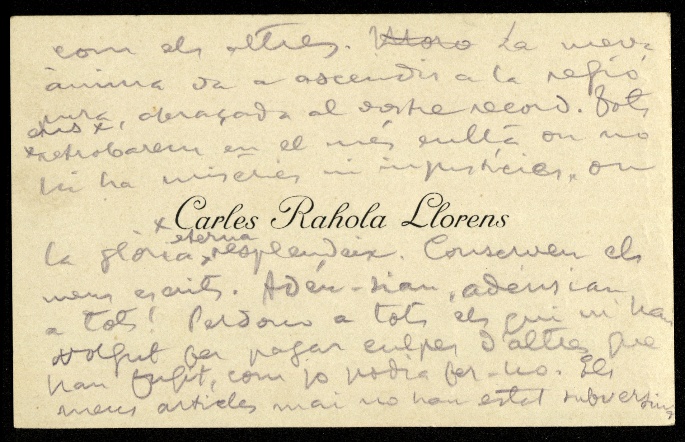 com els altres. Moro La meva
ànima va a ascendir a la regió
pura, abraçada al vostre record. Tots
ens x
x retrobarem en el més enllà on no
hi ha misèries ni injustícies, on
Carles Rahola Llorens
x eterna
la glòria x resplendeix. Conserveu els
meus escrits. Adéu-siau, adéusiau
a tots! Perdono a tots els qui m'han
volgut fer pagar culpes d'altres que
han fugit, com jo podia fer-ho. Els
meus articles mai no han estat subversius